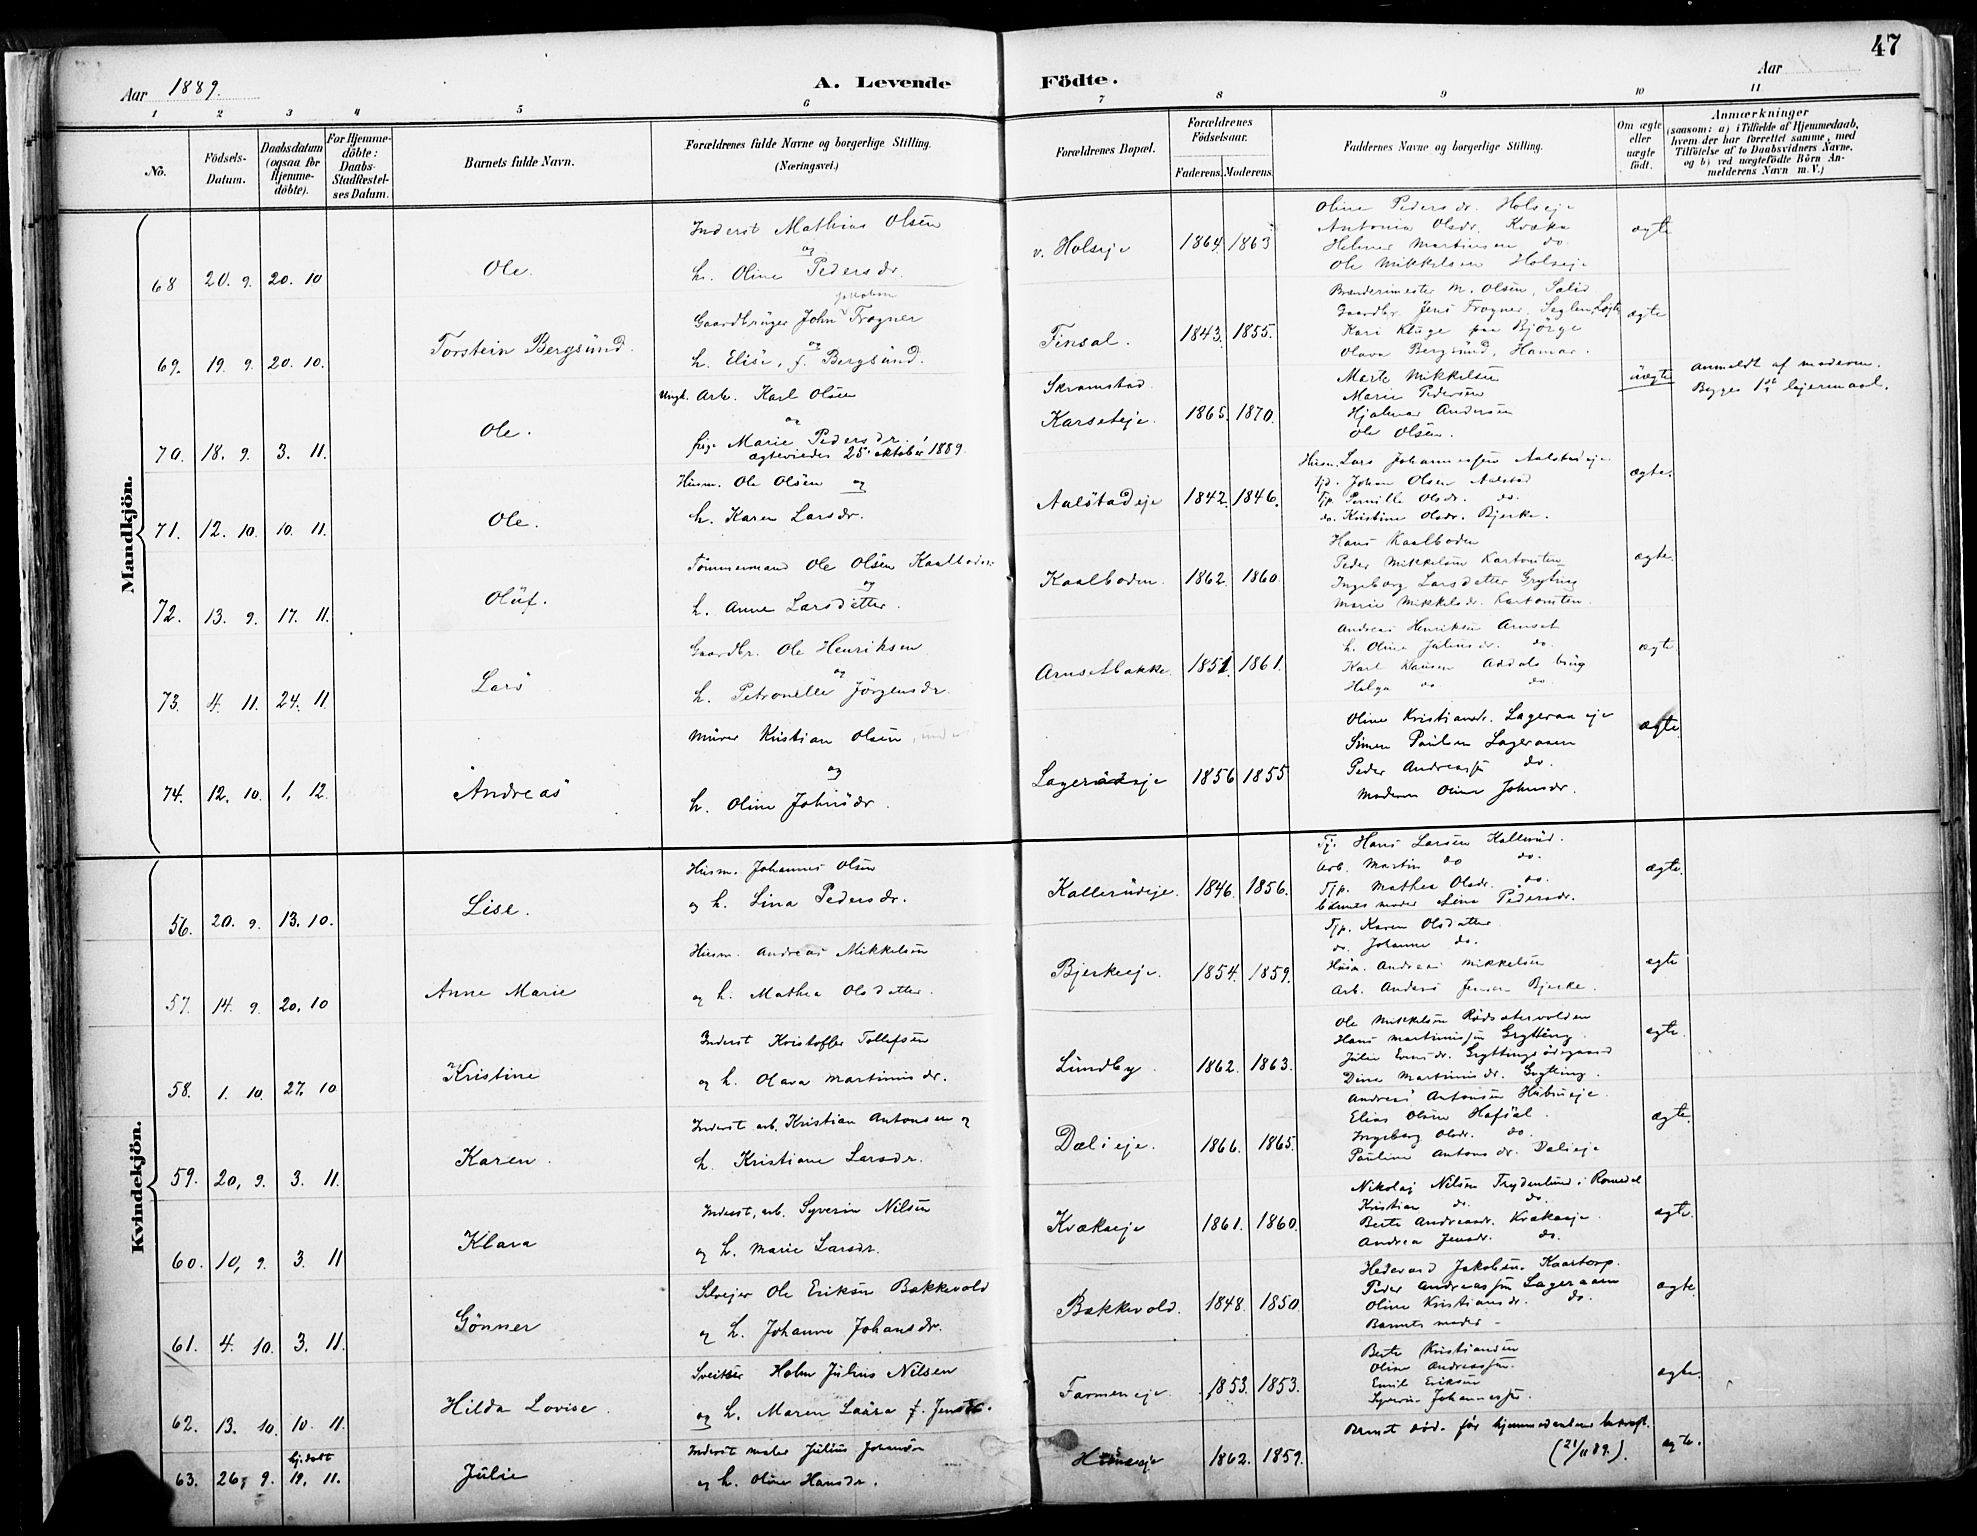 47
Aar 1889.
A. Levende Födte.
Aar
1 2 3 4 5 6 7 8 9 10 11
No.
Födsels-Datum.
Daabsdatum (ogsaa for Hjemme-döbte).
For Hjemme-döbte: Daabs-Stadfæstel-ses Datum.
Barnets fulde Navn.
Forældrenes fulde Navne og borgerlige Stilling. (Næringsvei.)
Forældrenes Bopæl.
Forældrenes Födselsaar.
Faderens. Moderens.
Faddernes Navne og borgerlige Stilling.
Om ægte eller uægte födt.
Anmærkninger (saasom: a) i Tilfælde af Hjemmedaab, hvem der har forrettet samme, med Tilföielse af to Daabsvidners Navne, og b) ved uægtefödte Börn Anmelderens Navn m. V.)
Mandkjön.
68 20. 9. 20. 10 Ole. Inderst Mathias Olsen
og
h. Oline Pedersdr. v. Holseje 1864. 1863
Oline Pedersdr. Holseje
Antonia Olsdr. Kvæka
Helmer Martinsen do.
Ole Mikkelsen Holseje
ægte
69. 19. 9. 20. 10. Torstein Bergsund. Gaardbruger John Jakobsen Frogner
og
h. Elise, f. Bergsund. Finsal. 1843. 1855.
Brænderimester M. Olsen, Salid
Gaardbr. Jens Frogner, Løjte
Kari Kluge paa Bjørge
Olava Bergsund, Hamar.
ægte
70. 18. 9. 3. 11. Ole. Ungk. Arb. Karl Olsen
og
pige Marie Pedersdr.
ægteviedes 25. oktober 1889. Skramstad
Karseteje. 1865. 1870.
Marte Mikkelsen
Marie Pedersen
Hjalmar Andersen
Ole Olsen.
uægte
Anmeldt af moderen.
Begges 1st lejermaal.
71. 12. 10. 10. 11. Ole. Husm. Ole Olsen og
h. Karen Larsdr. Aalstadeje 1842. 1846.
Husm. Lars Johannessen Aalstadeje
Tjd. Johan Olsen Aalstad
Tjp. Pernille Olsdr. do.
do. Kristine Olsdr. Bjerke.
ægte.
72. 13. 9. 17. 11. Oluf. Tømmermand Ole Olsen Kaalboden
og
h. Anne Larsdatter. Kaalboden. 1862. 1860.
Hans Kaalboden
Peder Mikkelsen Kartomten
Ingeborg Larsdatter Gryting
Marie Mikkelsdr. Kartomten.
ægte.
73. 4. 11. 24. 11. Lars Gaardbr. Ole Henriksen
og
h. Petronelle Jørgensdr. Arnsetbakke. 1851. 1861.
Andreas Henriksen Arnset
h. Oline Juliusdr. do.
Karl Klausen Aadals brug
Helga do. do.
ægte
74. 12. 10. 1. 12. Andreas Murer Kristian Olsen
og
h. Oline Johnsdr. Lageraaeje 1856 1855
Oline Kristiansdr. Lageraaeje
Simen Paulsen Lageraaen
Peder Andreassen do.
Moderen Oline Johnsdr.
ægte.
Kvindekjön.
56. 20. 9. 13. 10. Lise. Husm. Johannes Olsen
og h. Lina Pedersdr. Kallerudeje. 1846. 1856.
Tj. Hans Larsen Kallerud.
Arb. Martin do do.
Tjp. Mathea Olsdr. do.
barnets moder Lina Pedersdr.
ægte.
57. 14. 9. 20. 10 Anne Marie Husm. Andreas Mikkelsen
og h. Mathea Olsdatter. Bjerkeeje. 1854. 1859.
Tjp. Karen Olsdatter
do. Johanne do.
Husm. Andreas Mikkelsen
Arb. Anders Jensen Bjerke.
ægte
58. 1. 10. 27. 10 Kristine Inderst Kristoffer Tollefsen
og h. Olava Martinusdr. Lundby 1862. 1863.
Ole Mikkelsen Rødsætervolden
Hans Martinussen Grytting.
Julie Evensdr. Gryttingsødegaard
Dina Martinusdr. Grytting.
ægte.
59. 20. 9. 3. 11. Karen. Inderst arb. Kristian Antonsen og
h. Kristiane Larsdr. Dælieje. 1866. 1865.
Andreas Antonsen Hubueje.
Elias Olsen Hafsal.
Ingeborg Olsdr. do.
Pauline Antonsdr. Dælieje
ægte.
60. 10. 9. 3. 11 Klara Inderst, arb. Syverin Nilsen
og h. Marie Larsdr. Kvækaeje 1861. 1860.
Nikolaj Nilsen Frydenlund i Romedal
Kristian do. do.
Berte Andreasdr. Kvækaeje.
Andrea Jensdr. do.
ægte.
61. 4. 10. 3. 11. Gønner Selvejer Ole Eriksen Bakkevold
og h. Johanne Johansdr. Bakkevold. 1848. 1850.
Hedevard Jakobsen Kaartorp.
Peder Andreassen Lageraaen
Oline Kristiansdr. do.
Barnets moder -
ægte.
62. 13. 10. 10. 11. Hilda Lovise. Sveitser Holm Julius Nilsen
og h. Maren Laura f. Jens. Farmeneje. 1853. 1853.
Berte Kristiansen
Oline Andreassen.
Emil Eriksen
Syverin Johannessen.
ægte.
63. 26. 9. hj. døbt 19. 11. Julie Inderst maler Julius Johansen
og h. Oline Hansdr. 1862. 1859.
Barnet død før hjemmedaaben bekræft.
(21/11 89.).
ægte.